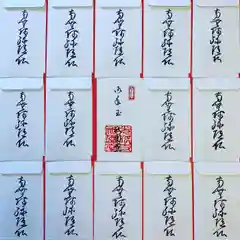 南無阿弥陀仏
南無阿弥陀仏
南無阿弥陀仏
南無阿弥陀仏
南無阿弥陀仏
南無阿弥陀仏
南無阿弥陀仏
お年玉
南無阿弥陀仏
南無阿弥陀仏
南無阿弥陀仏
南無阿弥陀仏
南無阿弥陀仏
南無阿弥陀仏
南無阿弥陀仏